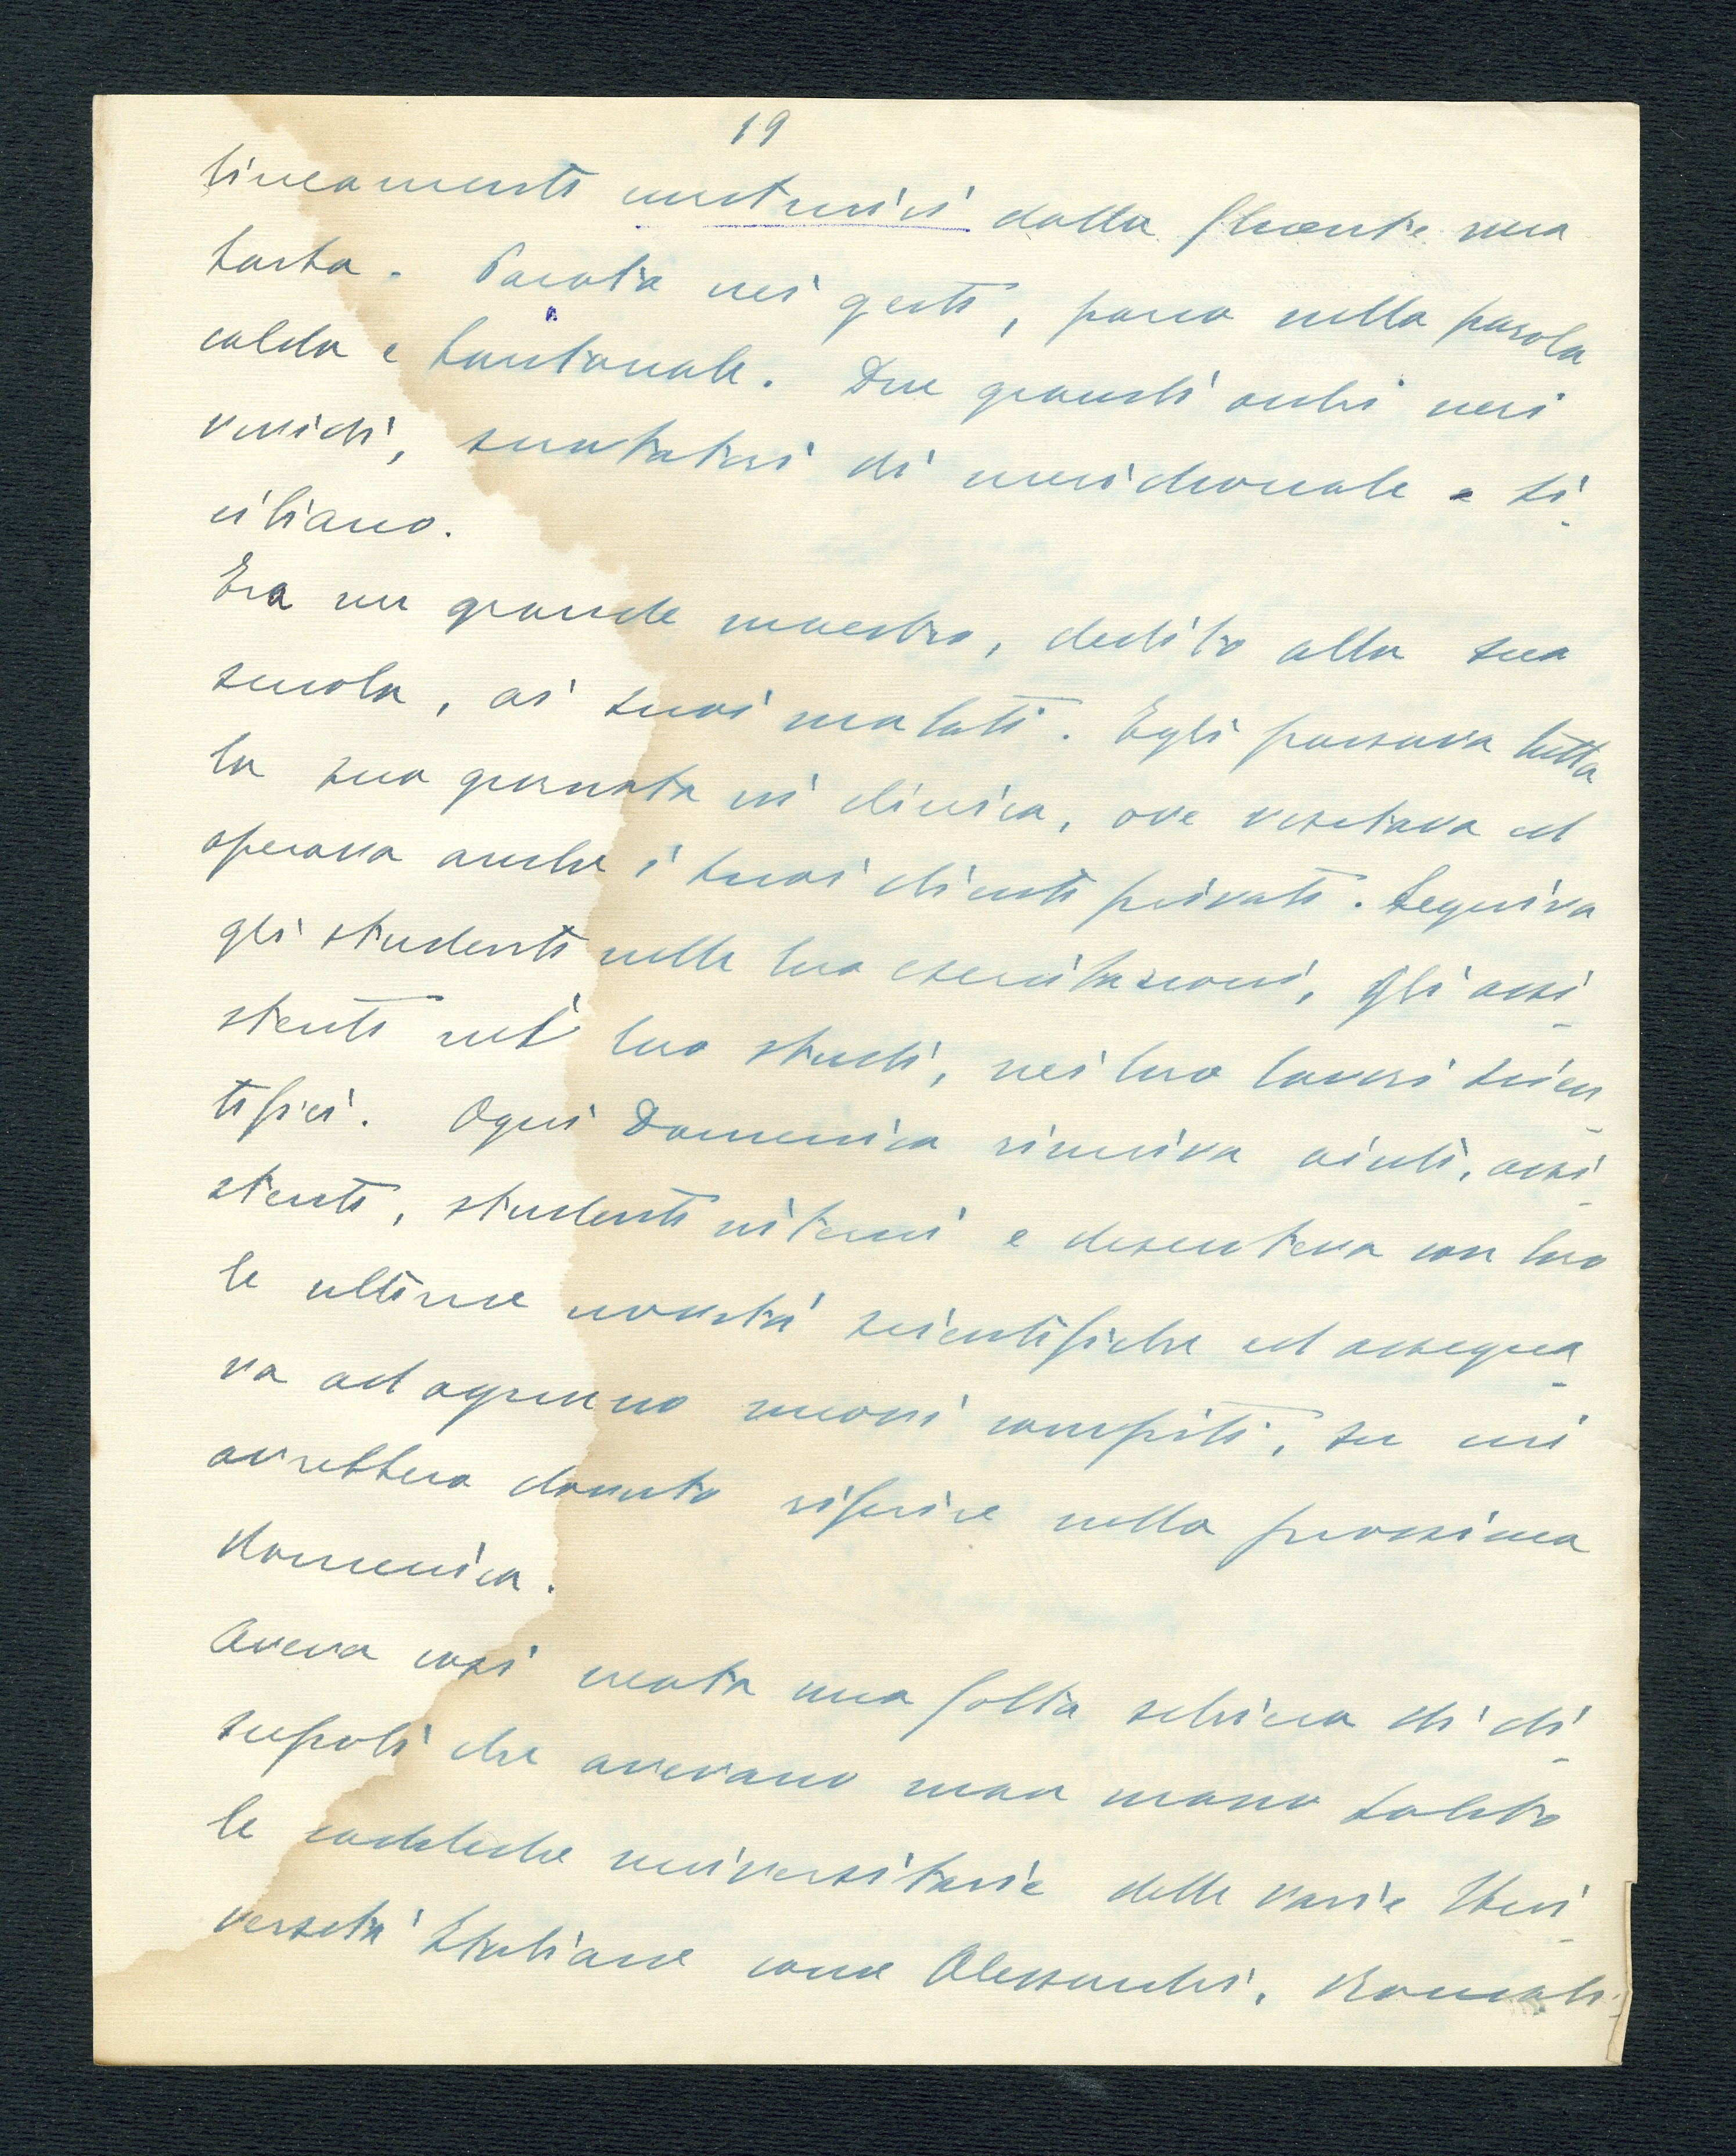 19
lineamenti dalla fluente nera
barba. Pacata nei gesti, parca nella parola
calda e baritonale. Due grandi occhi neri
vividi, scrutatori di meridionale e si-
ciliano.
Era un grande maestro, dedito alla sua
scuola, ai suoi malati. Egli passava tutta
la sua giornata in clinica, ove visitava ed
operava anche i suoi clienti privati. Seguiva
gli studenti nelle loro esercitazioni, gli assi-
stenti nei loro studi, nei loro lavori scien-
tifici. Ogni Domenica riuniva aiuti, assi-
stenti, studenti interni e discuteva con loro
le ultime novità scientifiche ed assegna-
va ad ognuno nuovi compiti, su cui
avrebbero dovuto riferire nella prossima
domenica.
Aveva così creata una folta schiera di di-
scepoli che avevano man mano salito
le cattedre universitarie delle varie Uni-
versità Italiane come Alessandri,